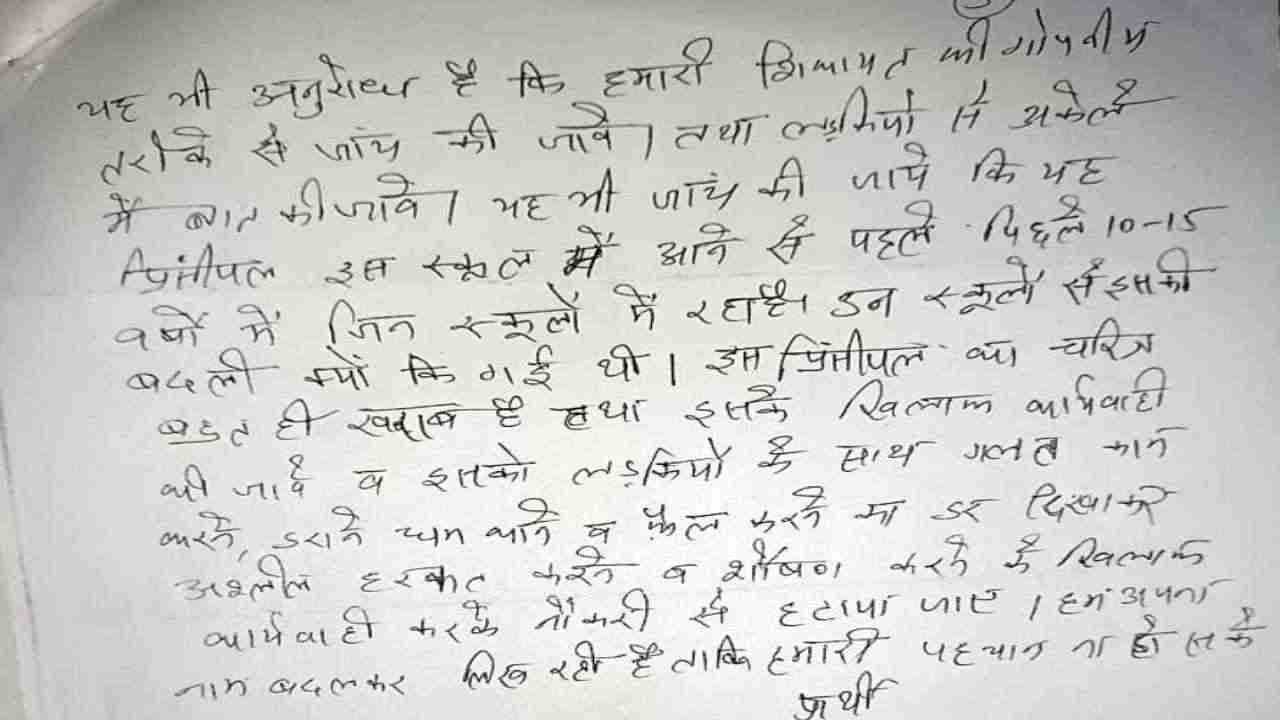 यह भी अनुरोध है कि हमारी शिकायत की गोपनीय
तरीके से जांच की जावे। तथा लड़कियो से अकेले
में बात की जावे। यह भी जांच की जाये कि यह
प्रिंसीपल इस स्कूल में आने से पहले पिछले 10-15
वर्षो में जिन स्कूलों में रहा है। उन स्कूलों से इसकी
बदली क्यों कि गई थी। इस प्रिंसीपल का चरित्र
बहुत ही खराब है तथा इसके खिलाफ कार्यवाही
की जावे व इसको लड़कियों के साथ गलत काम
करने, डराने धमकाने व फ़ेल करने का डर दिखाकर
अश्लील हरकत करने व शोषण करने के खिलाफ
कार्यवाही करके नौकरी से हटाया जाए। हम अपना
नाम बदलकर लिख रही है ताकि हमारी पहचान ना हो सके
प्रार्थी